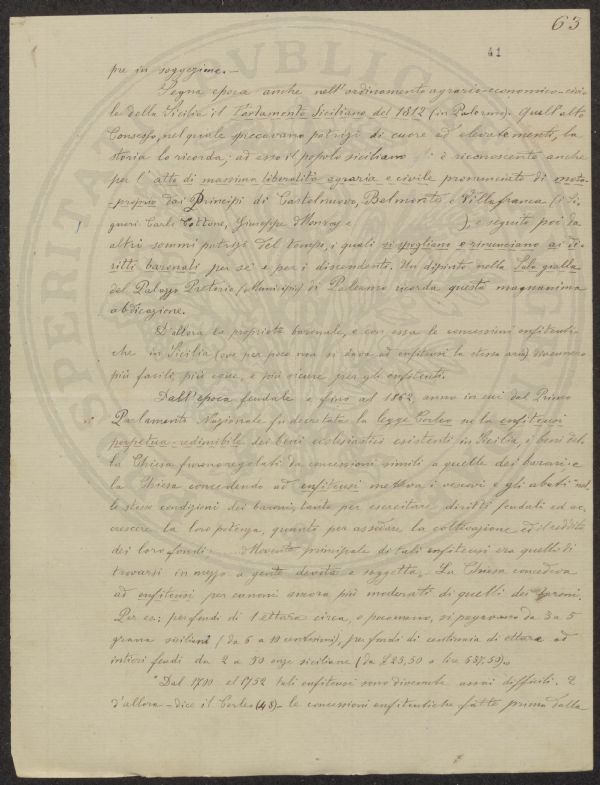 63
41
pre in soggezione. —
Segna epoca anche nell'ordinamento agrario-economico-civi-
le della Sicilia il Parlamento Siciliano del 1812 (in Palermo). Quell'alto
Consesso, nel quale spiccavano patrizi di cuore ed elevate menti, la
storia lo ricorda; ad esso il popolo siciliano è riconoscente anche
per l'atto di massima liberalità agraria e civile pronunciato di motu-
-proprio dai Principi di Castelnuovo, Belmonte e Villafranca (Si-
gnori Carlo Cottone, Giuseppe e ), e seguito poi da
altri sommi patrizi del tempo, i quali si spogliano e rinunciano ai di-
ritti baronali per sè e per i discendenti. Un dipinto nella Sala gialla
del Palazzo Pretorio (Municipio) di Palermo ricorda questa magnanima
abdicazione.
D'allora la proprietà baronale, e con essa le concessioni enfiteuti-
che in Sicilia (ove per poco non si dava ad enfiteusi la stessa aria) divennero
più facili, più eque, e più sicure per gli enfiteuti.
Dall'epoca feudale e fino al 1862, anno in cui dal Primo
Parlamento Nazionale fu decretata la legge Corleo su la enfiteusi
perpetua-redimibile dei beni ecclesiastici esistenti in Sicilia, i beni del-
la Chiesa furono regolati da concessioni simili a quelle dei baroni e
la Chiesa concedendo ad enfiteusi metteva i vescovi e gli abati nel-
le stesse condizioni dei baroni, tanto per esercitare diritti feudali ed ac-
crescere la loro potenza, quanto per assodare la coltivazione ed il reddito
dei loro fondi. Movente principale di tali enfiteusi era quello di
trovarsi in mezzo a gente devota e soggetta. La Chiesa concedeva
ad enfiteusi per canoni ancora più moderati di quelli dei baroni.
Per es: per fondi di 1 ettara circa, o pocomeno, si pagavano da 3 a 5
grana siciliani (da 6 a 10 centesimi), per fondi di centinaia di ettare ad
interi feudi da 2 a 50 onze siciliane (da £ 25,50 a lire 637,50).
"Dal 1700 al 1752 tali enfiteusi sono divenute assai difficili. E
d'allora - dice il Corleo (48) - le concessioni enfiteutiche fatte prima dalla